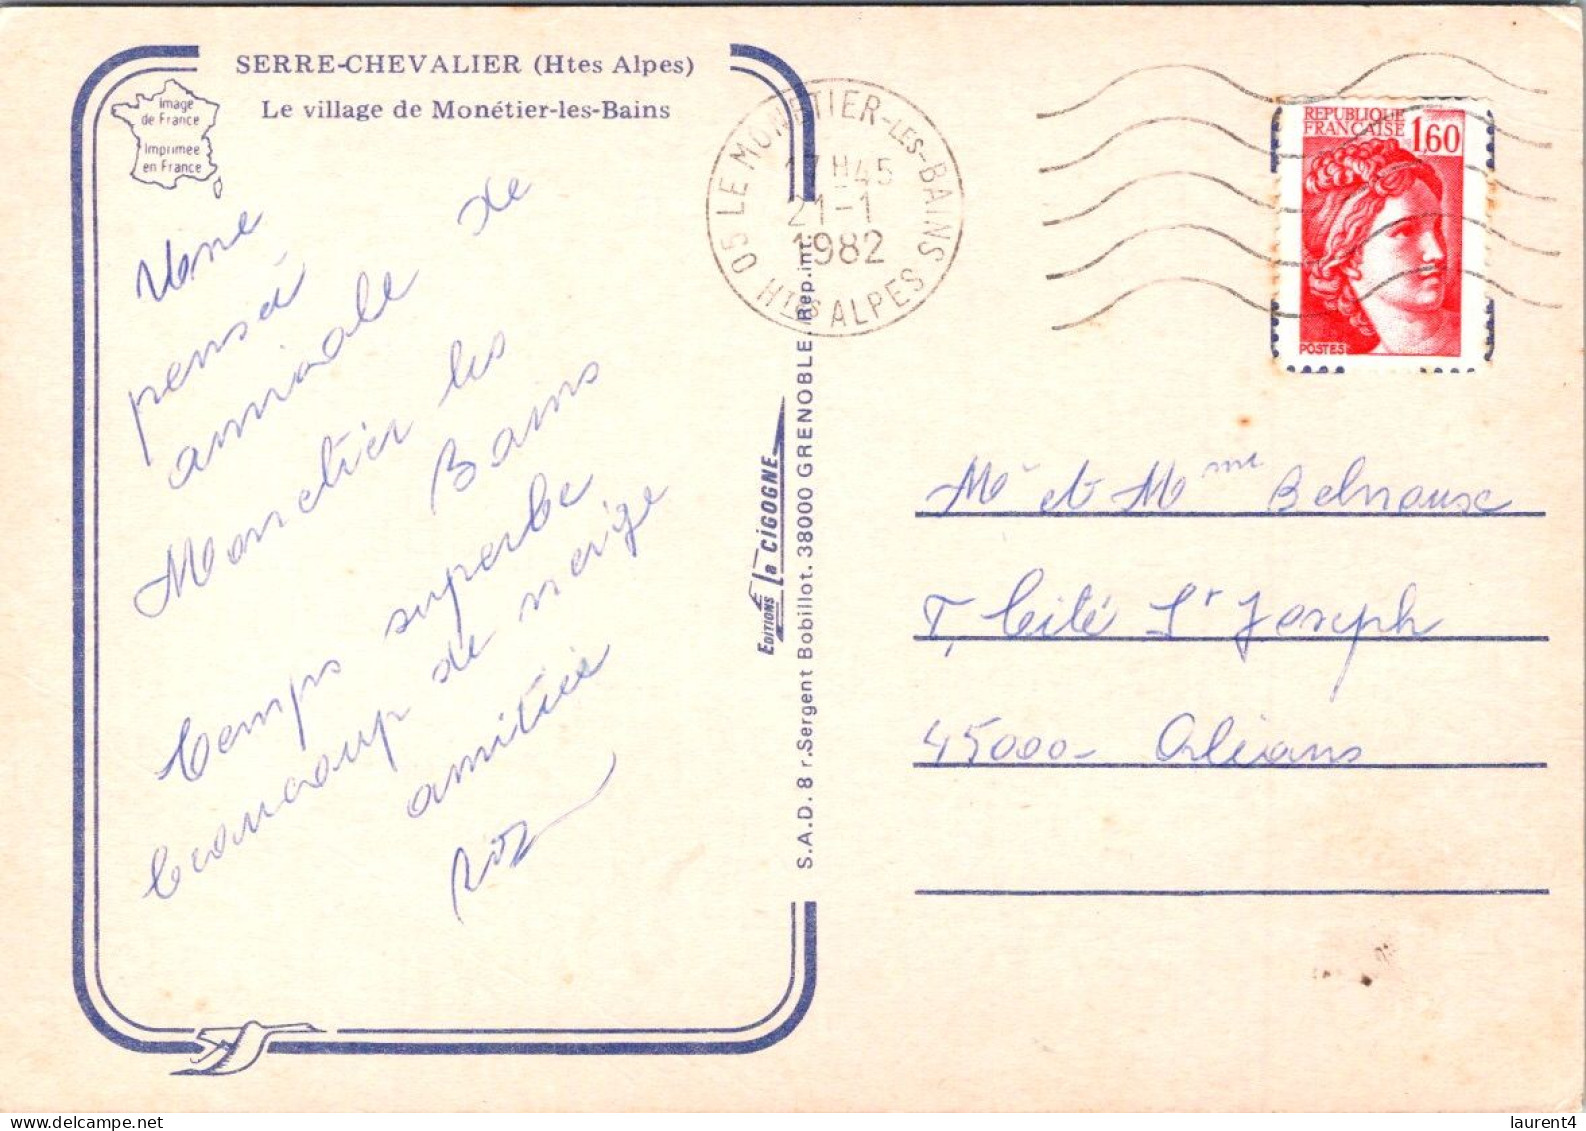 SERRE-CHEVALIER (Htes Alpes)
Le village de Monétier-les-Bains
Image
de France
Imprimée
en France
Une
pensé
amicale de
Monetier les
Bains
Temps superbe
beaucoup de neige
amitiée
05 LE MONETIER-LES-BAINS
17H45
21-1
1982
HTES ALPES
REPUBLIQUE
FRANÇAISE 1,60
POSTES
EDITIONS La CIGOGNE
S.A.D. 8 r.Sergent Bobillot. 38000 GRENOBLE. Rep.int.
Mr et Mme
7, Cité St Joseph
45000 - Orléans
delcampe.net
laurent4